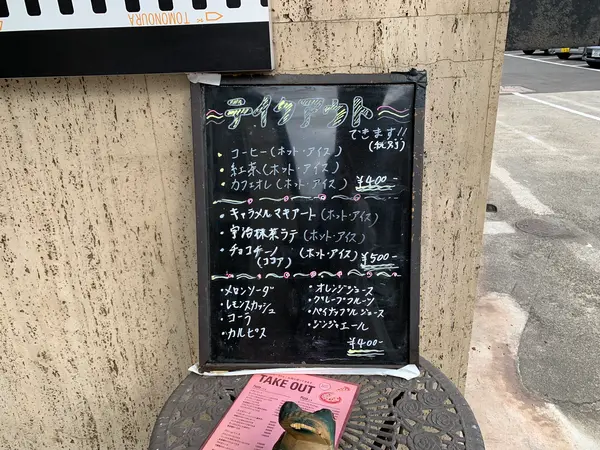 TOMONOURA
テイクアウト
できます!!
(税別)
・コーヒー(ホット・アイス)
・紅茶(ホット・アイス)
・カフェオレ(ホット・アイス) ¥400-
・キャラメルマキアート(ホット・アイス)
・宇治抹茶ラテ(ホット・アイス)
・チョコチーノ(ホット・アイス) ¥500-
(ココア)
・メロンソーダ
・レモンスカッシュ
・コーラ
・カルピス
・オレンジジュース
・グレープフルーツ
・パイナップルジュース
・ジンジャエール
¥400-
TAKE OUT